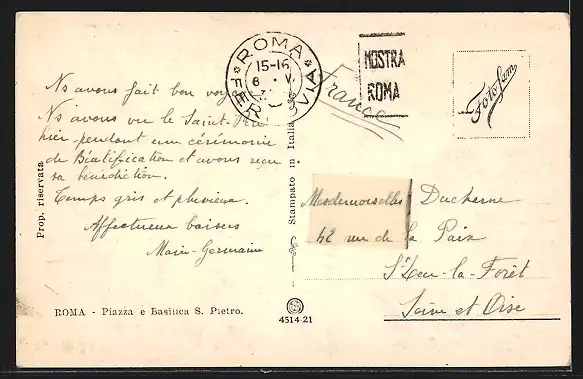 Ns avons fait bon voyage
Ns avons vu le Saint-Père
hier pendant une cérémonie
de Béatification et avons reçu
sa bénédiction.
Temps gris et pluvieux.
Affectueux baisers
Marie-Germaine
ROMA - Piazza e Basilica S. Pietro.
Prop. riservata
Stampato in Italia
4514-21
ROMA
15-16
FERROVIA
MOSTRA
ROMA
Francia
Fotofam
Mesdemoiselles Duchesne
42 rue de la Paix
St Leu-la-Forêt
Seine et Oise